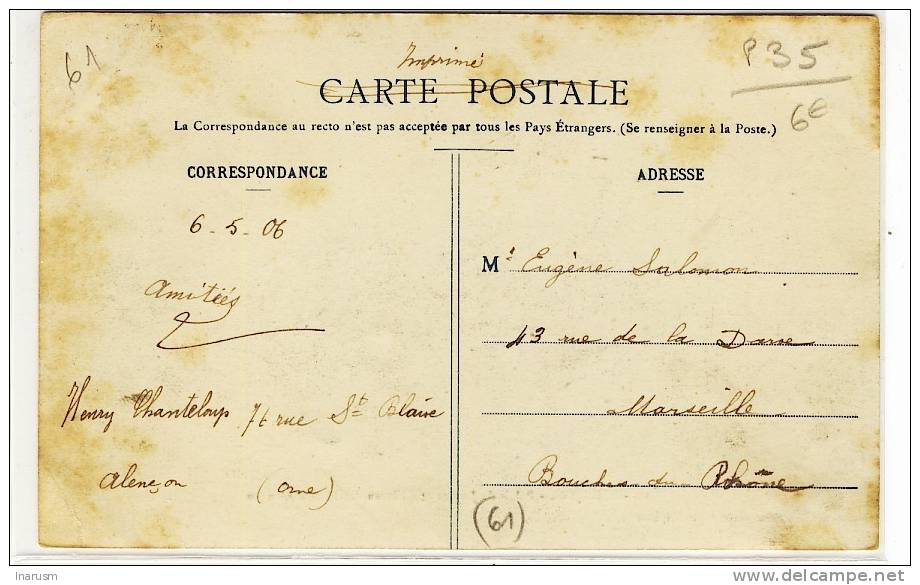 61
Imprimé
P35
CARTE POSTALE
6€
La Correspondance au recto n'est pas acceptée par tous les Pays Étrangers. (Se renseigner à la Poste.)
CORRESPONDANCE
6-5-06
Amitiés
Henry Chanteloup 76 rue St Blaise
Alençon (Orne)
ADRESSE
Mr Eugène Salomon
43 rue de la Darse
Marseille
Bouches du Rhône
(61)
Inarusm
delcampe.net